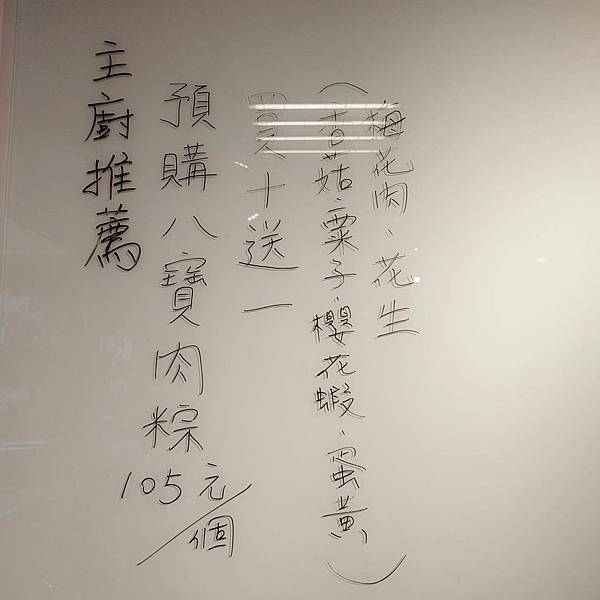 主廚推薦
預購八寶肉粽
105元/個
買十送一
(香菇、粟子、櫻花蝦、蛋黃)
梅花肉、花生